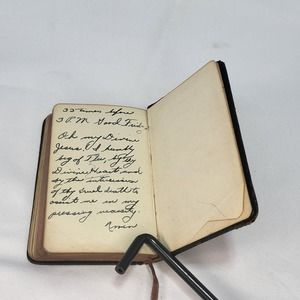 33 times before
3 P.M. Good Frid.
Oh my Divine
Jesus! I humbly
beg of Thee, by thy
Divine Heart and
by the intercession
of thy cruel death to
assist me in my
pressing necessity.
Amen